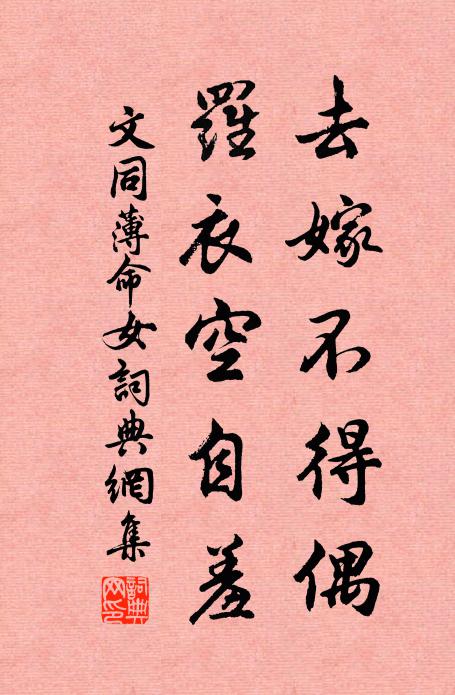 去嫁不得偶
羅衣空自羞
文同薄命女詞典網集
詞典网印